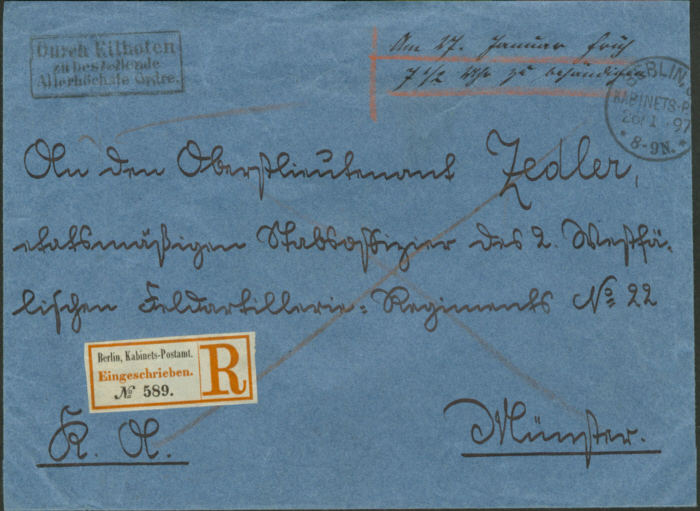 Durch Eilboten
zu bestellende
Allerhöchste Ordre.
Am 27. Januar früh
7 1/2 Uhr zu behändigen
BERLIN,
KABINETS-P
26/1 97
* 8-9N. *
An den Oberstlieutenant Zedler,
etatsmäßigen Stabsoffizier des 2. Westfä-
lischen Feldartillerie-Regiments No 22
Berlin, Kabinets-Postamt.
Eingeschrieben.
No 589.
R
K. A.
Münster.